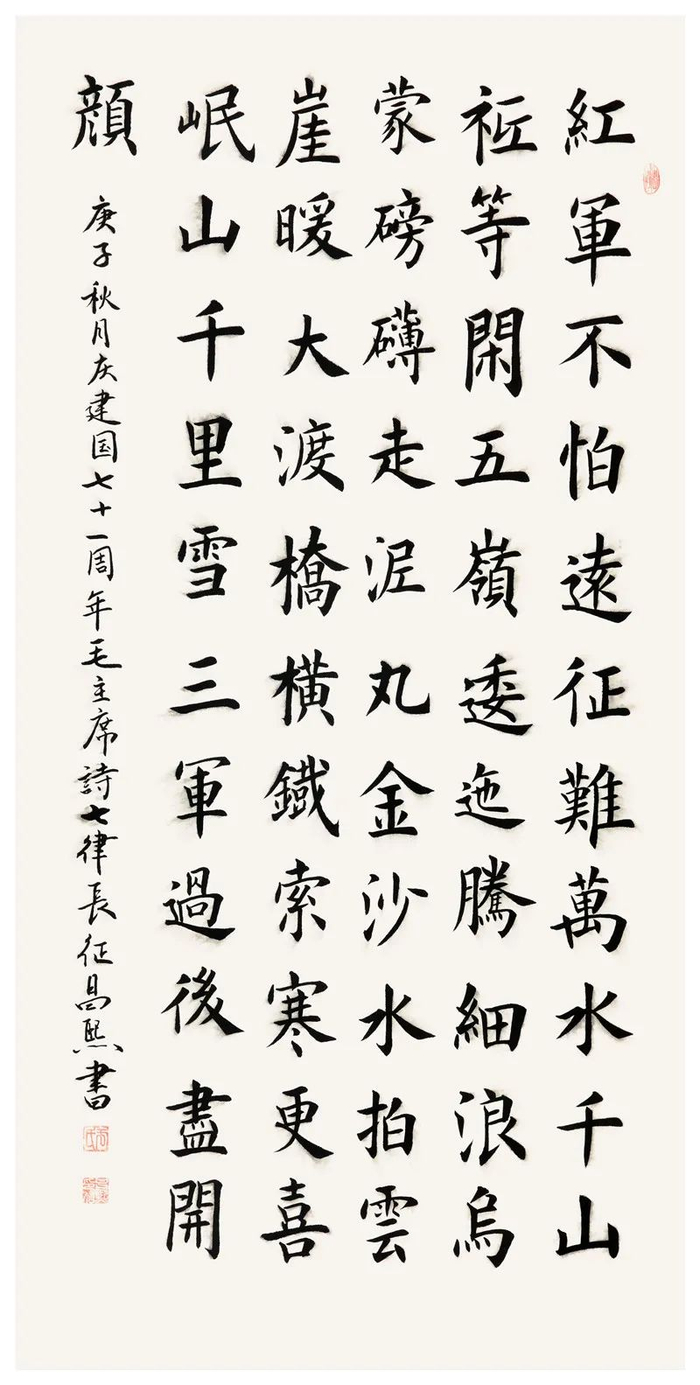 紅軍不怕遠征難萬水千山
祗等閑五嶺逶迤騰細浪烏
蒙磅礴走泥丸金沙水拍雲
崖暖大渡橋横鐵索寒更喜
岷山千里雪三軍過後盡開
顔
庚子秋月庆建国七十一周年毛主席詩七律長征昌熙書